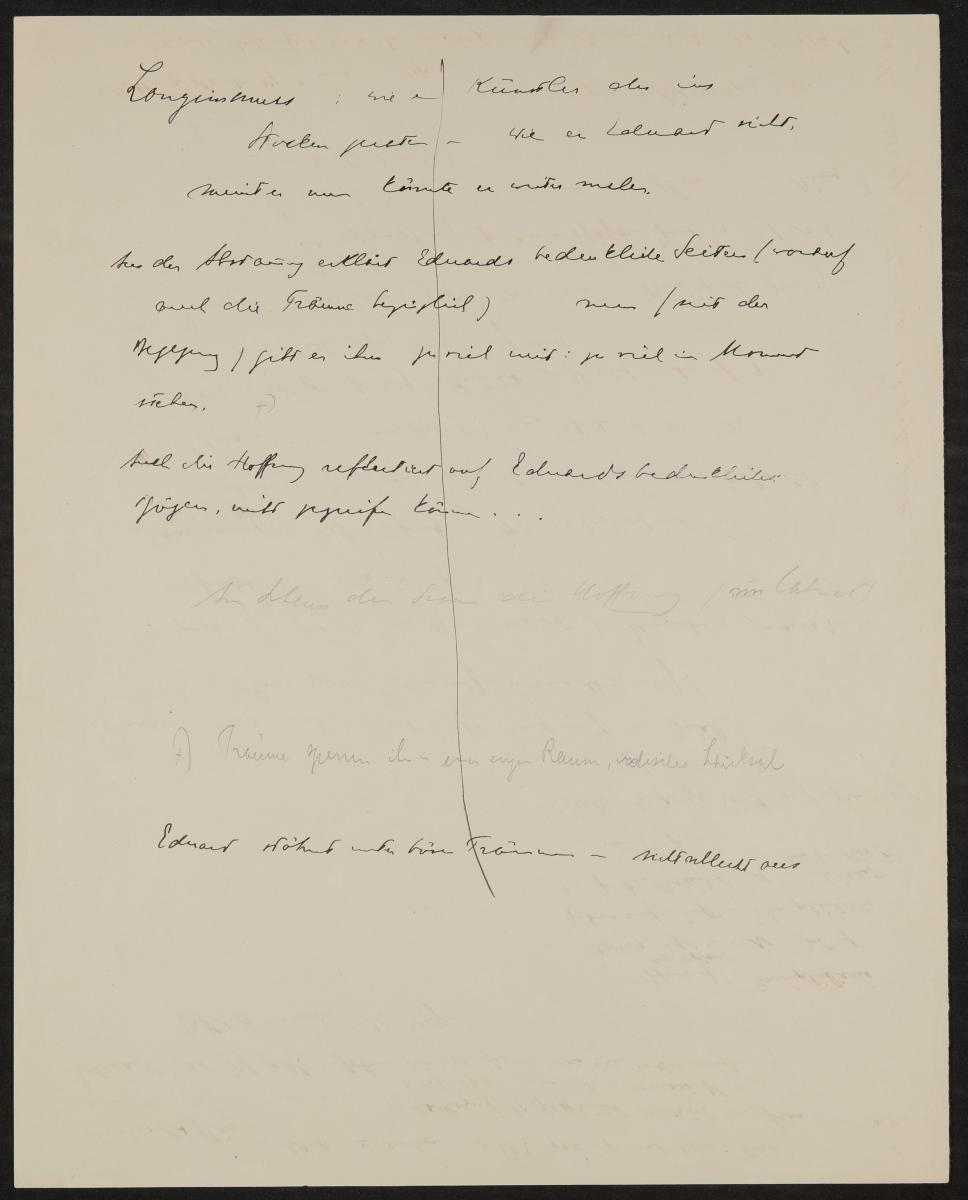 : wie ein Künstler der ins
Stocken geraten – wie er Eduard sieht,
meint er nun könnte er weiter malen.
Aus der erklärt Eduards bedenkliche Seiten (worauf
auch die Träume bezüglich) nun (mit der
Begegnung) gibt er ihm zu viel mit: zu viel im Moment
sehen. +)
Auch die Hoffnung reflectiert auf Eduards bedenkliche
, nicht können . . .
Am Schluss der die Hoffnung (im
+) Träume sperren ihn in einen engen Raum, Schicksal
Eduard stöhnt unter bösen Träumen – sieht schlecht aus